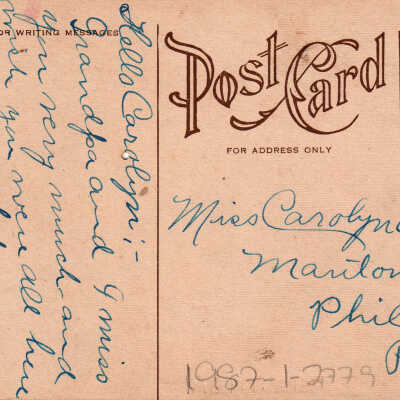 FOR WRITING MESSAGES
Hello Carolyn:-
Grandpa and I miss
you very much and
wish you were all here
Post Card
FOR ADDRESS ONLY
Miss Carolyn
Manton
Phil
P
1987-1-2779